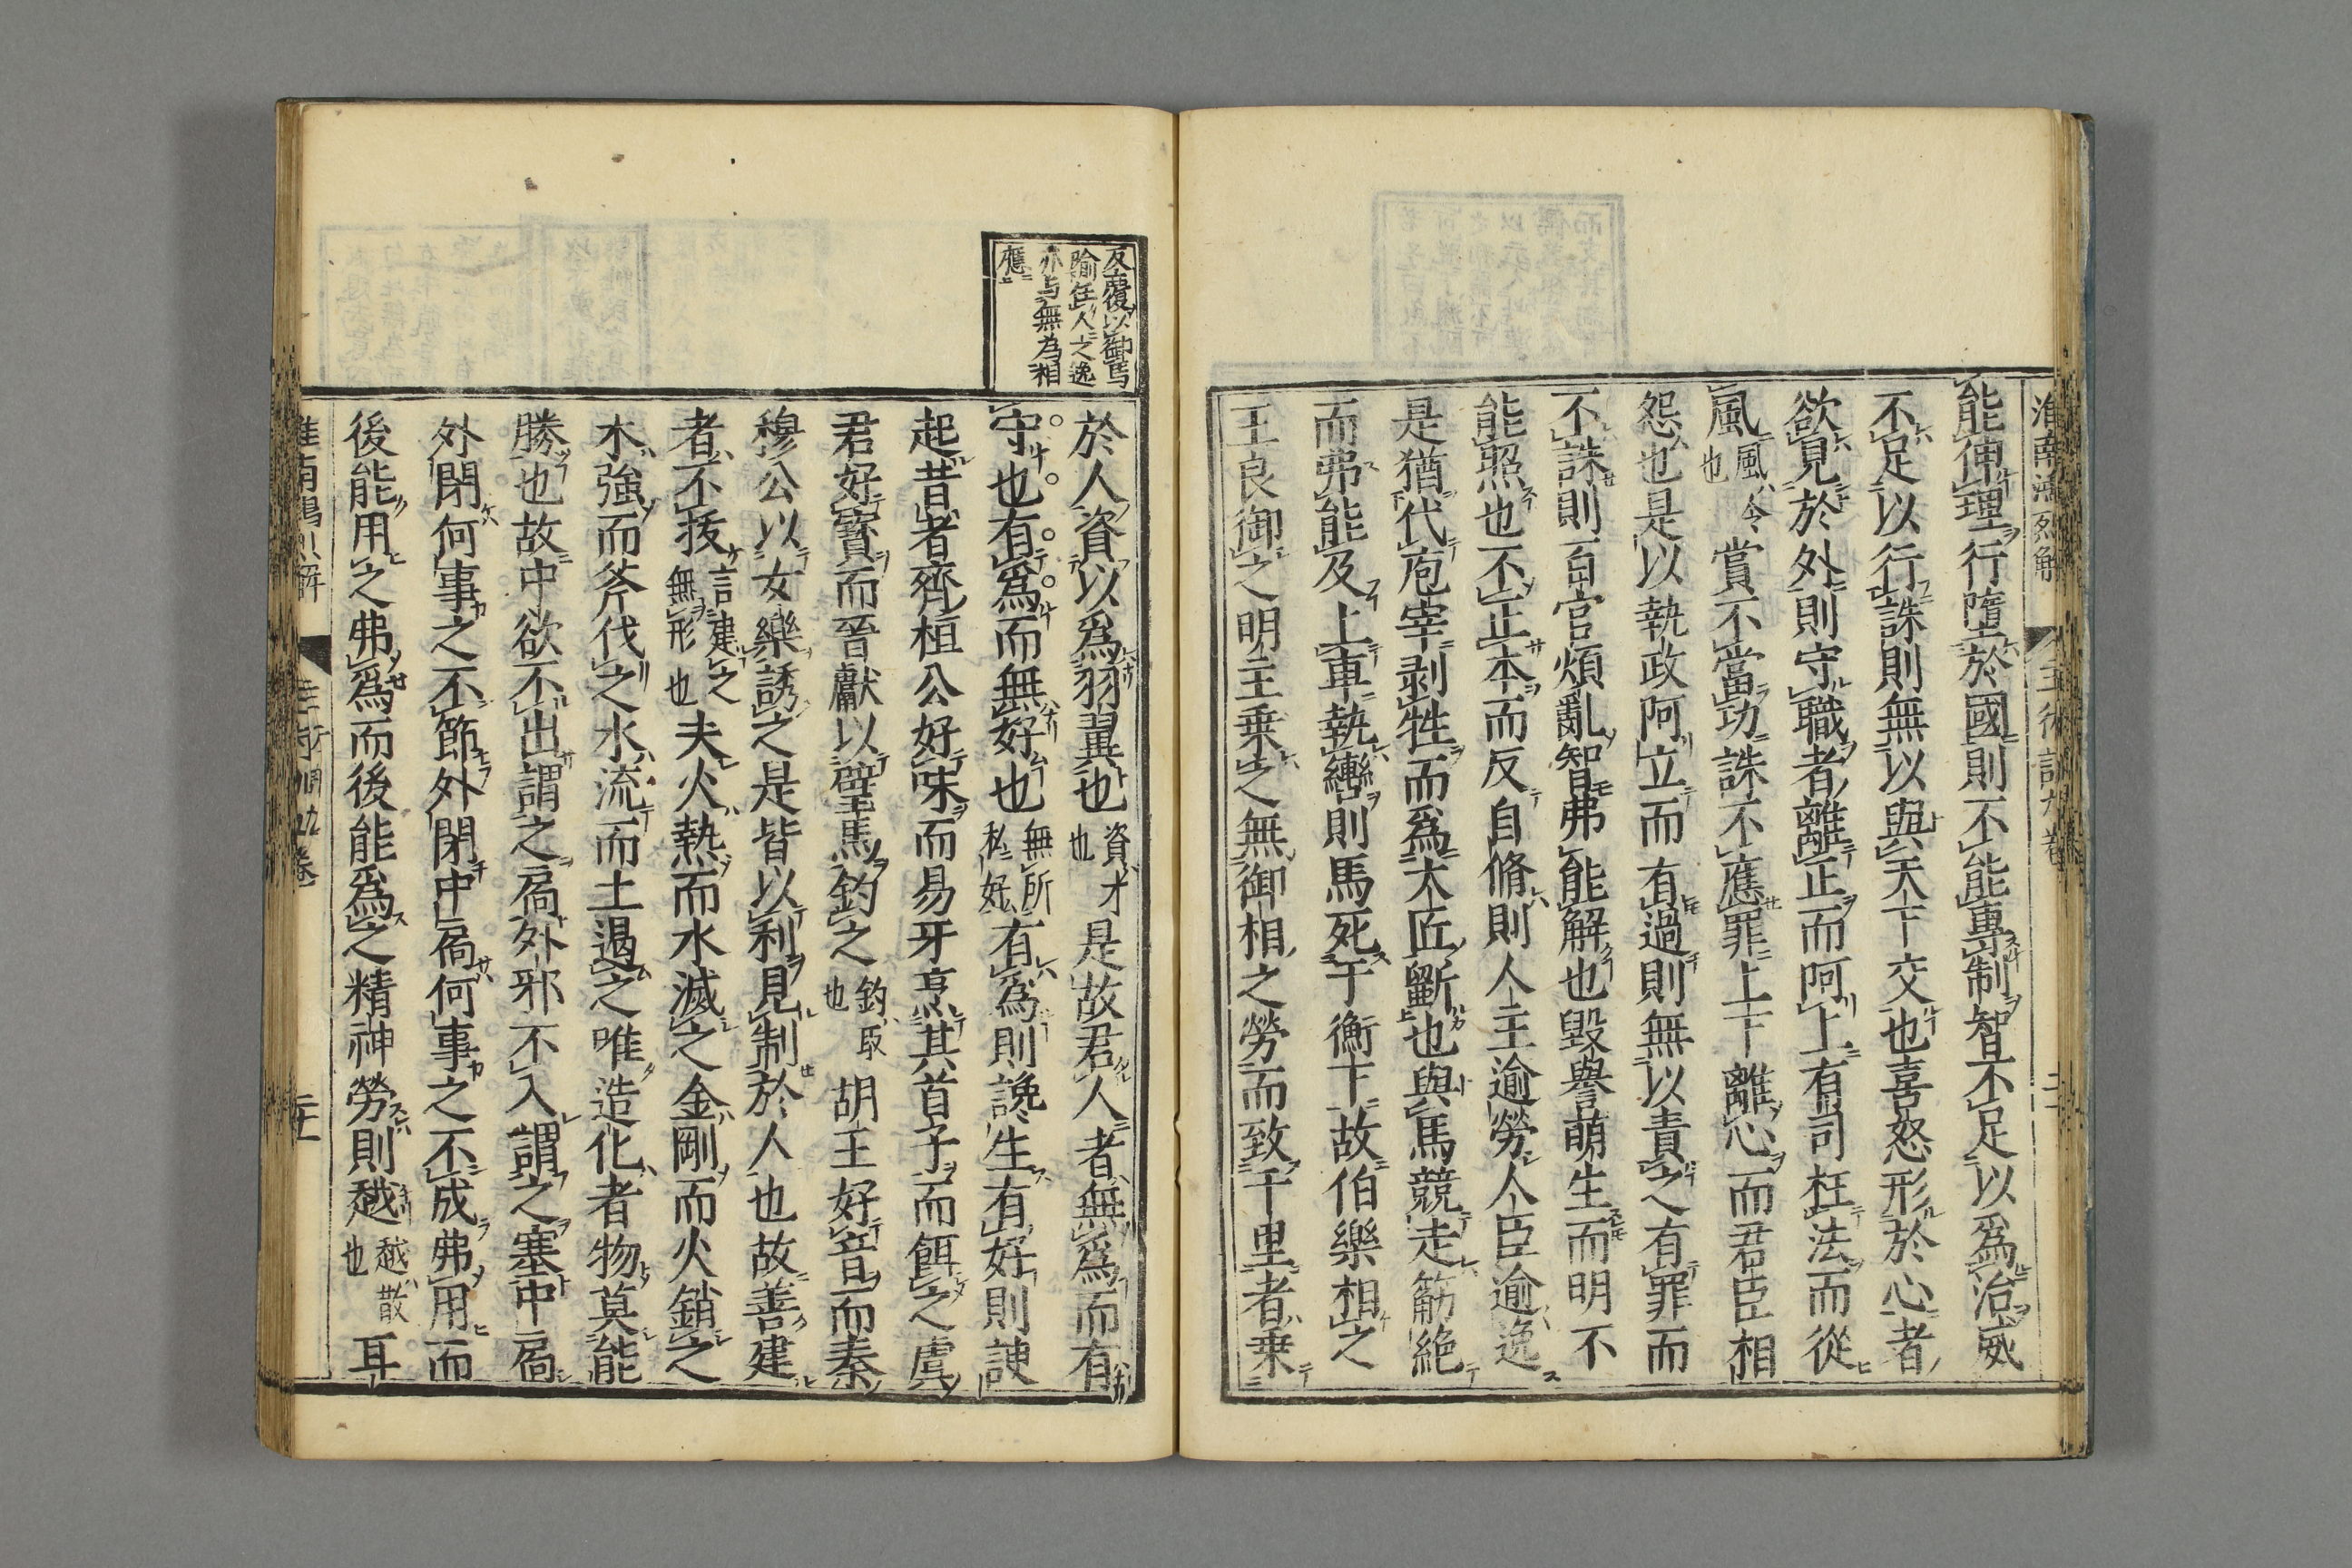 淮南鴻烈解 主術訓九卷
能伸理行墮於國則不能專制智不足以爲治威
不足以行誅則無以與天下交也喜怒形於心者
欲見於外則守職者離正而阿上有司枉法而從
風風令也賞不當功誅不應罪上下離心而君臣相
怨也是以執政阿主而有過則無以責之有罪而
不誅則百官煩亂智弗能解也毀譽萌生而明不
能照也不正本而反自脩則人主逾勞人臣逾逸
是猶代庖宰剥牲而爲大匠斷也與馬競走筋絶
而弗能及上車執轡則馬死于衡下故伯樂相之
王良御之明主乗之無御相之勞而致千里者乗
反覆以御馬
喻任人之逸
亦与無為相
應
於人資以爲羽翼也資才也是故君人者無爲而有
守也有爲而無好也無所私好有爲則讒生有好則諛
起昔者齊桓公好味而易牙烹其首子而餌之虞
君好寳而晉獻以璧馬釣之釣取也胡王好音而秦
穆公以女樂誘之是皆以利見制於人也故善建
者不抜言建之無形也夫火熱而水滅之金剛而火銷之
木強而斧伐之水流而土遏之唯造化者物莫能
勝也故中欲不出謂之扃外邪不入謂之塞中扃
外閉何事之不節外閉中扃何事之不成弗用而
後能用之弗爲而後能爲之精神勞則越越散也耳